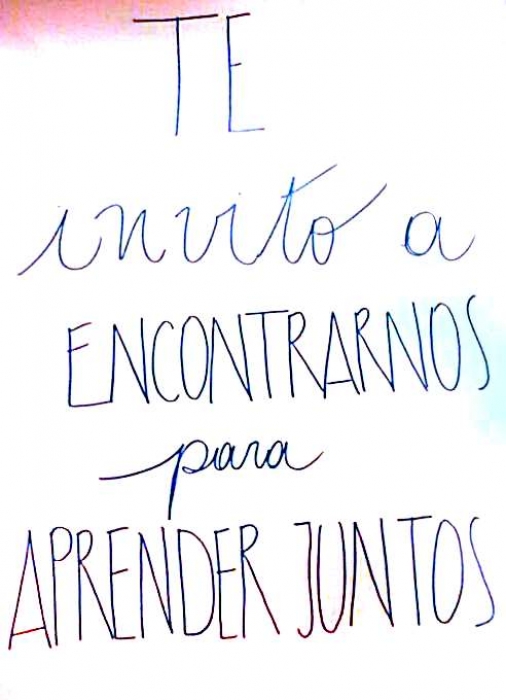 TE
invito a
ENCONTRARNOS
para
APRENDER JUNTOS